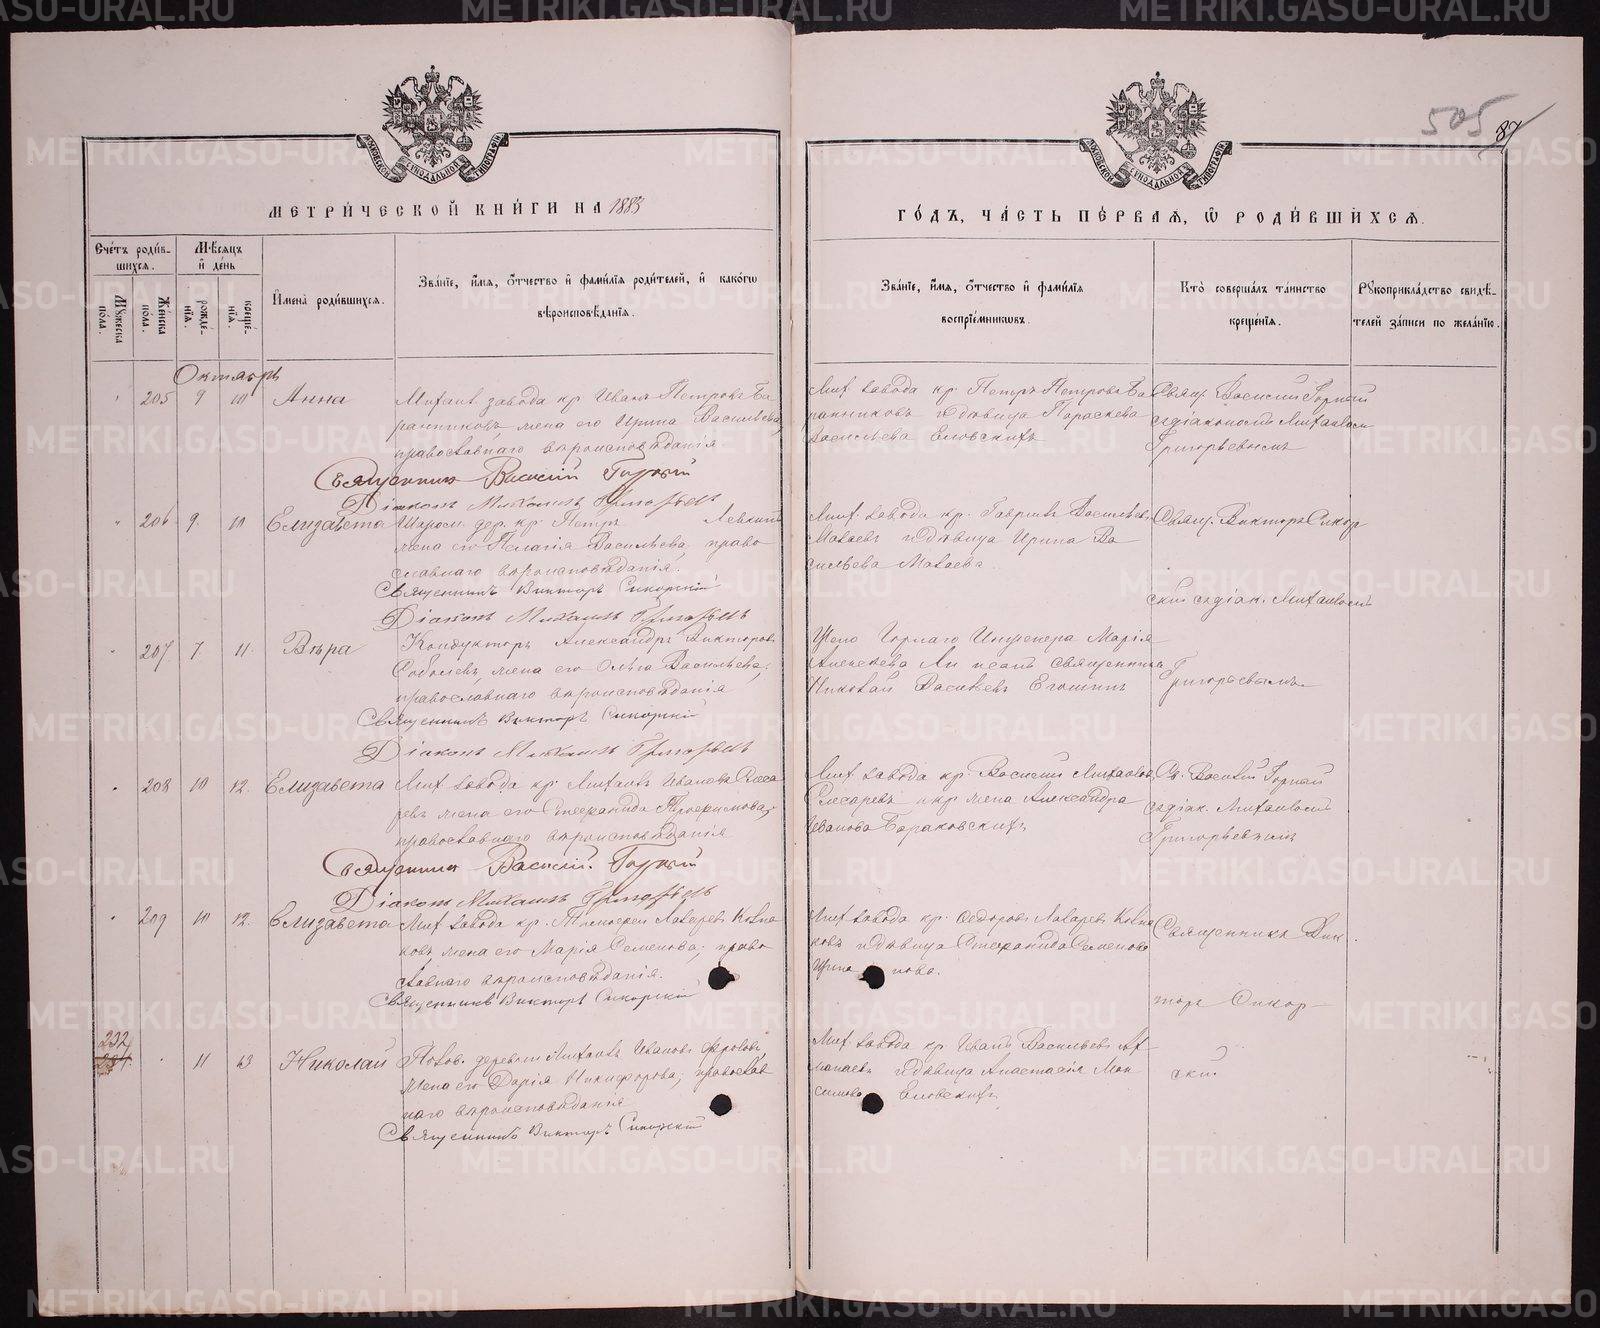 505 87
МЕТРИ́ЧЕСКОЙ КНИ́ГИ НА 1883
ГО́ДЪ, ЧА́СТЬ ПЕ́РВАѦ, Ѡ҆ РОДИ́ВШИХСѦ.
Сче́тъ роди́в-
шихсѧ.
Мѣ́сѧцъ
и҆ де́нь
И҆мена̀ роди́вшихсѧ.
Зва́нїе, и҆́мѧ, ѻ҆́тчество и҆ фами́лїѧ роди́телей, и҆ како́гѡ
вѣроисповѣ́данїѧ.
Зва́нїе, и҆́мѧ, ѻ҆́тчество и҆ фами́лїѧ
воспрїе́мникѡвъ.
Кто̀ соверша́лъ та́инство
креще́нїѧ.
Рꙋкоприкла́дство свидѣ́-
телей за́писи по жела́нїю.
Мꙋ́жеска
по́ла.
Же́нска
по́ла.
рожде́-
нїѧ.
креще́-
нїѧ.
Октябрь
205 9 10 Анна
Михаил. завода кр. Иванъ Петровъ Ба
ранниковъ, жена его Ирина Васильева,
православнаго вѣроисповѣданія
Священникъ Василій Горный
Діаконъ Михаилъ Григорьевъ
Мих. завода кр. Петръ Петровъ Ба
ранниковъ и дѣвица Параскева
Васильева Еловскихъ
Свящ. Василий Горный
съ діакономъ Михаиломъ
Григорьевымъ
206 9. 10 Елизавета
дер. кр. Петръ
жена его Пелагія Васильева, право
славнаго вѣроисповѣданія.
Священникъ Викторъ Сикорскій
Діаконъ Михаилъ Григорьевъ
Мих. завода кр. Гавриилъ Васильевъ
и дѣвица Ирина Ва
сильева
Свящ. Викторъ Сикор
скій съ діак. Михаиломъ
Григорьевымъ
207 7 11. Вѣра
Кондукторъ Александръ Викторовъ
Соболевъ, жена его Ольга Васильева;
православнаго вѣроисповѣданія
Священникъ Викторъ Сикорскій
Діаконъ Михаилъ Григорьевъ
Жена Горнаго Инженера Марія
Алексѣева священника
Николай Васильевъ Егошинъ
208 10 12. Елизавета
Мих. завода кр. Михаилъ Ивановъ Слеса
ревъ жена его Стефанида Трофимова,
православнаго вѣроисповѣданія
Священникъ Василій Горный
Діаконъ Михаилъ Григорьевъ
Мих. завода кр. Василий Михаиловъ
Слесаревъ и кр. жена Александра
Иванова Бараковскихъ
Св. Василий Горный
съ діак. Михаиломъ
Григорьевымъ
209 10 12. Елизавета
Мих. завода кр. Тимофей Лазаревъ
жена его Марія Семенова; право
славнаго вѣроисповѣданія.
Священникъ Викторъ Сикорскій
Мих. завода кр. Ѳедоръ Лазаревъ
и дѣвица Стефанида Семенова
Священникъ Вик
торъ Сикор
скій
232
231. 11 13 Николай
деревни Михаилъ Ивановъ Фроловъ
жена его Дарія Никифорова; православ
наго вѣроисповѣданія
Священникъ Викторъ Сикорскій
Мих. завода кр. Иванъ Васильевъ
и дѣвица Анастасія Мак
симова Еловскихъ
METRIKI.GASO-URAL.RU